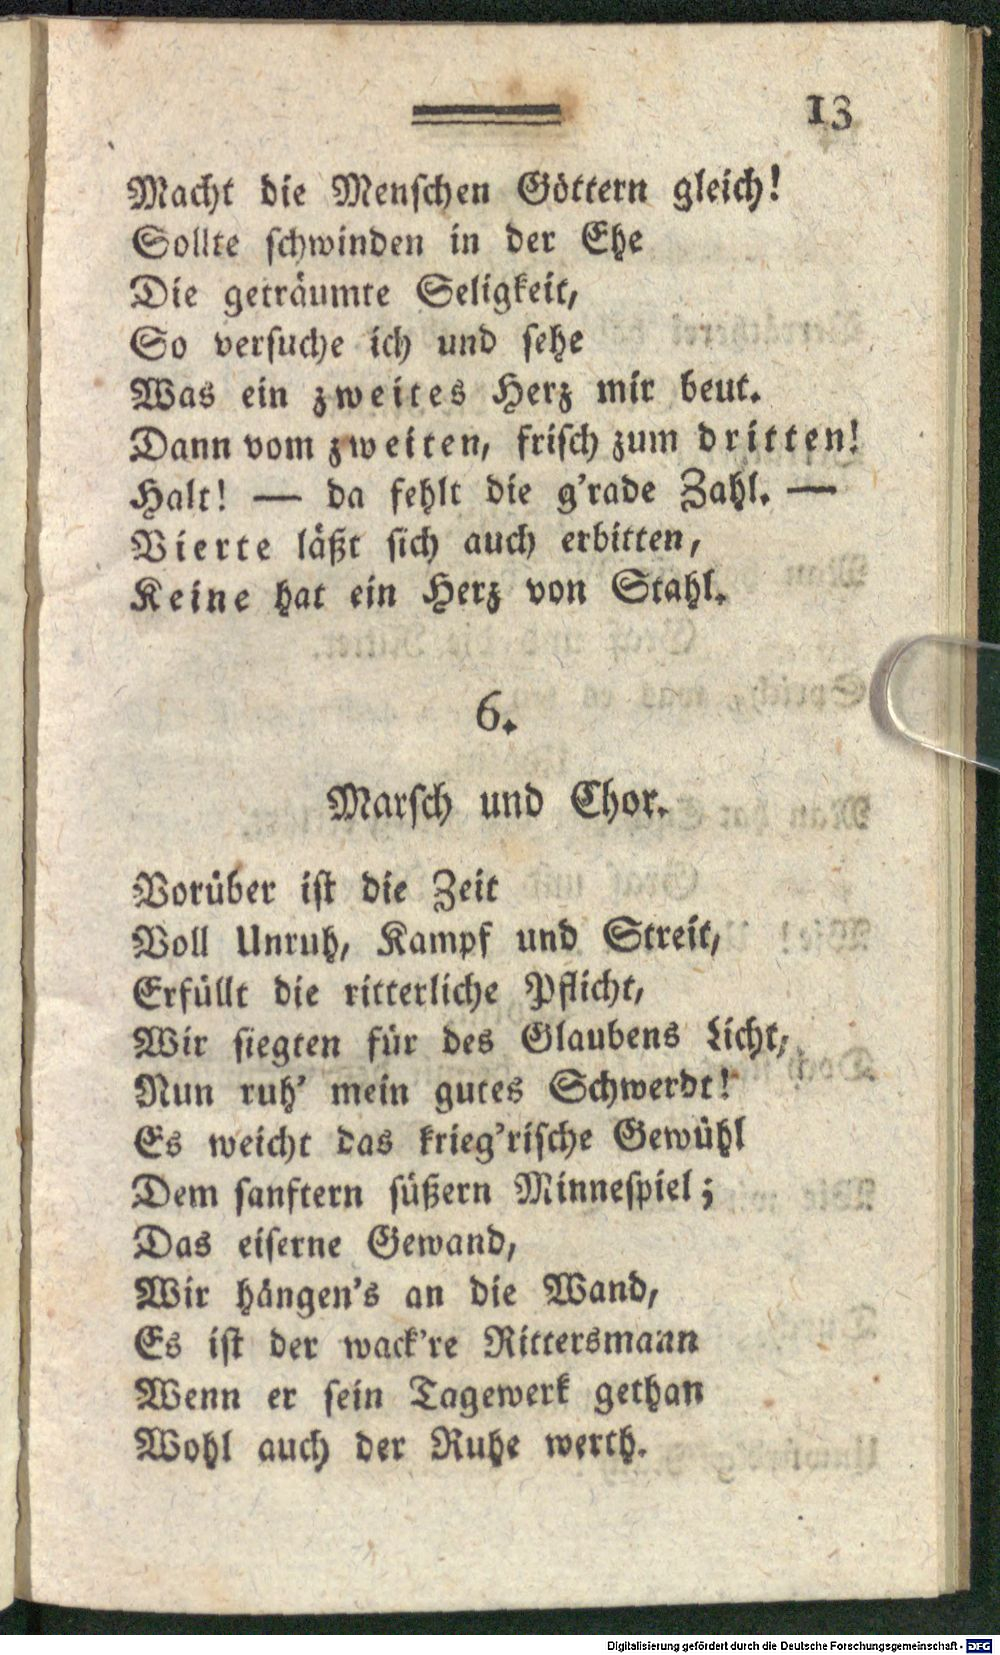 13
Macht die Menschen Göttern gleich!
Sollte schwinden in der Ehe
Die geträumte Seligkeit,
So versuche ich und sehe
Was ein zweites Herz mir beut.
Dann vom zweiten, frisch zum dritten!
Halt! — da fehlt die g'rade Zahl. —
Vierte läßt sich auch erbitten,
Keine hat ein Herz von Stahl.
6.
Marsch und Chor.
Vorüber ist die Zeit
Voll Unruh, Kampf und Streit,
Erfüllt die ritterliche Pflicht,
Wir siegten für des Glaubens Licht,
Nun ruh' mein gutes Schwerdt!
Es weicht das krieg'rische Gewühl
Dem sanftern süßern Minnespiel;
Das eiserne Gewand,
Wir hängen's an die Wand,
Es ist der wack're Rittersmann
Wenn er sein Tagewerk gethan
Wohl auch der Ruhe werth.
Digitalisierung gefördert durch die Deutsche Forschungsgemeinschaft - DFG